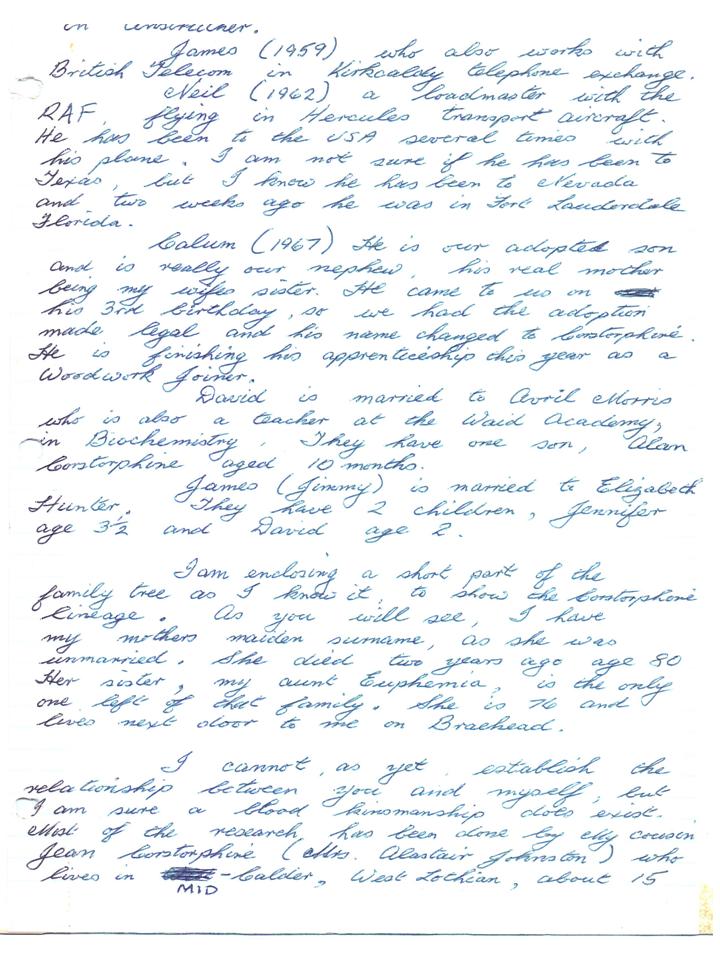 in
James (1959) who also works with
British Telecom in Kirkcaldy telephone exchange.
Neil (1962) a loadmaster with the
RAF, flying in Hercules transport aircraft.
He has been to the USA several times with
his plane. I am not sure if he has been to
Texas, but I know he has been to Nevada
and two weeks ago he was in Fort Lauderdale
Florida.
Calum (1967) He is our adopted son
and is really our nephew, his real mother
being my wifes sister. He came to us on
his 3rd birthday, so we had the adoption
made legal and his name changed to Corstorphine.
He is finishing his apprenticeship this year as a
Woodwork Joiner.
David is married to Avril Morris
who is also a teacher at the Waid Academy,
in Biochemistry. They have one son, Alan
Corstorphine aged 10 months.
James (Jimmy) is married to Elizabeth
Hunter. They have 2 children, Jennifer
age 3½ and David age 2.
I am enclosing a short part of the
family tree as I know it, to show the Corstorphine
lineage. As you will see, I have
my mothers maiden surname, as she was
unmarried. She died two years ago age 80
Her sister, my aunt Euphemia, is the only
one left of that family. She is 76 and
lives next door to me on Braehead.
I cannot, as yet, establish the
relationship between you and myself, but
I am sure a blood kinsmanship does exist.
Most of the research, has been done by my cousin
Jean Corstorphine (Mrs. Alastair Johnston) who
lives in MID-Calder, West Lothian, about 15